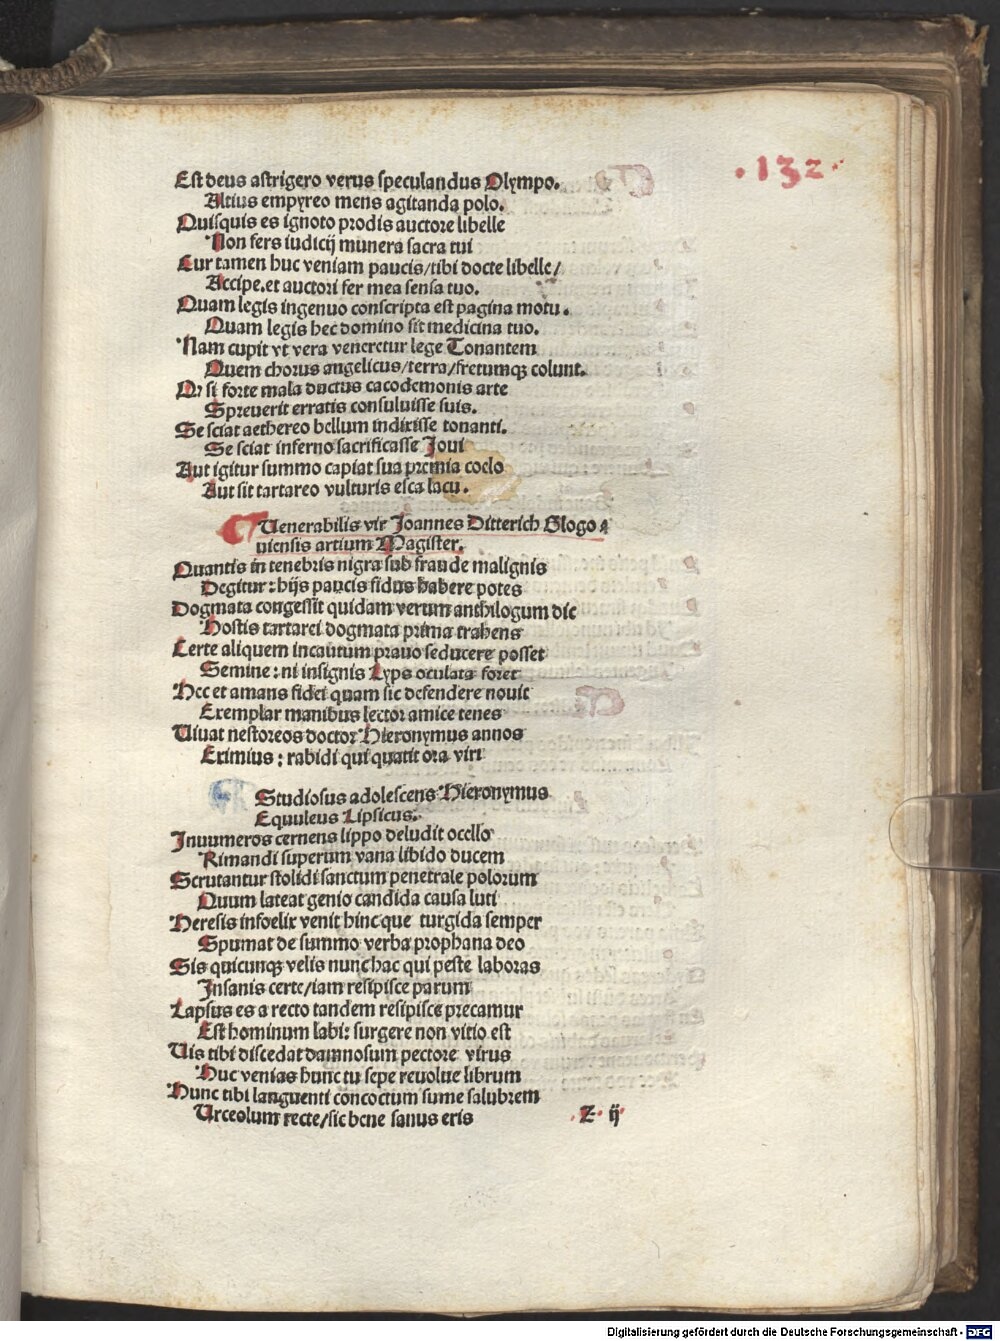 .132.
Est deus astrigero verus speculandus Olympo.
Altius empyreo mens agitanda polo.
Quisquis es ignoto prodis auctore libelle
Non fers iudicij munera sacra tui
Cur tamen huc veniam paucis/tibi docte libelle/
Accipe.et auctori fer mea sensa tuo.
Quam legis ingenuo conscripta est pagina motu.
Quam legis hec domino sit medicina tuo.
Nam cupit vt vera veneretur lege Tonantem
Quem chorus angelicus/terra/fretumqȝ colunt.
Qi si forte mala ductus cacodemonis arte
Spreuerit erratis consuluisse suis.
Se sciat aethereo bellum indixisse tonanti.
Se sciat inferno sacrificasse Ioui
Aut igitur summo capiat sua premia coelo
Aut sit tartareo vulturis esca lacu.
Uenerabilis vir Joannes Ditterich Glogo
uiensis artium Magister.
Quantis in tenebris nigra sub fraude malignis
Degitur: hijs paucis fidus habere potes
Dogmata congessit quidam verum anthilogum dic
Hostis tartarei dogmata prima trahens
Certe aliquem incautum prauo seducere posset
Semine: ni insignis Lyps oculata foret
Hec et amans fidei quam sic defendere nouit
Exemplar manibus lector amice tenes
Uiuat nestoreos doctor Hieronymus annos
Eximius: rabidi qui quatit ora viri
Studiosus adolescens Hieronymus
Equuleus Lipsicus.
Inuumeros cernens lippo deludit ocello
Rimandi superum vana libido ducem
Scrutantur stolidi sanctum penetrale polorum
Quum lateat genio candida causa luti
Heresis infoelix venit hinc que turgida semper
Spumat de summo verba prophana deo
Sis quicunqȝ velis nunc hac qui peste laboras
Insanis certe/iam resipisce parum
Lapsus es a recto tandem resipisce precamur
Est hominum labi: surgere non vitio est
Uis tibi discedat damnosum pectore virus
Huc venias hunc tu sepe reuolue librum
Hunc tibi languenti concoctum sume salubrem
Urceolum recte/sic bene sanus eris
Z ij
Digitalisierung gefördert durch die Deutsche Forschungsgemeinschaft - DFG